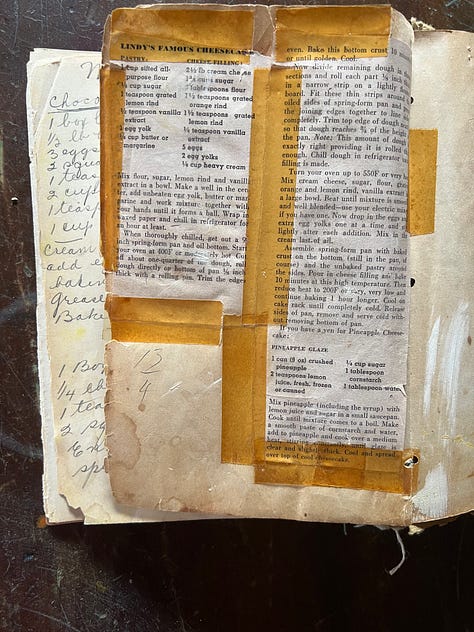 LINDY'S FAMOUS CHEESECAKE
PASTRY:
1 cup sifted all-
purpose flour
¼ cup sugar
1 teaspoon grated
lemon rind
½ teaspoon vanilla
extract
1 egg yolk
¼ cup butter or
margarine
CHEESE FILLING:
2½ lb cream cheese
sugar
3 tablespoons flour
1½ teaspoons grated
orange rind
1½ teaspoons grated
lemon rind
¼ teaspoon vanilla
extract
5 eggs
2 egg yolks
¼ cup heavy cream
Mix flour, sugar, lemon rind and vanilla
extract in a bowl. Make a well in the cen-
ter, add unbeaten egg yolk, butter or mar-
garine and work mixture together with
your hands until it forms a ball. Wrap in
waxed paper and chill in refrigerator for
an hour at least.
When thoroughly chilled, get out a 9-
inch spring-form pan and oil bottom. Start
your oven at 400F or moderately hot. Cut
off about one-quarter of the dough, roll
dough directly on bottom of pan ⅛ inch
thick with a rolling pin. Trim the edges
even. Bake this bottom crust 10
or until golden. Cool.
Now divide remaining dough in
sections and roll each part ⅛ inch
in a narrow strip on a lightly
board. Fit these thin strips around
oiled sides of spring-form pan and
the joining edges together to line
completely. Trim top edge of dough
so that dough reaches ¾ of the height
the pan. Note: This amount of dough
exactly right providing it is rolled
enough. Chill dough in refrigerator
filling is made.
Turn your oven up to 550F or very
Mix cream cheese, sugar, flour,
orange and lemon rind, vanilla extract
a large bowl. Beat until mixture is smooth
and well blended—use your electric
if you have one. Now drop in the eggs
extra egg yolks one at a time and
lightly after each addition. Mix in the
cream last of all.
Assemble spring-form pan with baked
crust on the bottom, (still in the pan,
course) and the unbaked pastry around
the sides. Pour in cheese filling and
10 minutes at this high temperature. Then
reduce heat to 200F or very, very low and
continue baking 1 hour longer. Cool on
cake rack until completely cold. Release
sides of pan, remove and serve cold
out removing bottom of pan.
If you have a yen for Pineapple Cheese-
cake:
PINEAPPLE GLAZE
1 can (9 oz) crushed
pineapple
2 teaspoons lemon
juice, fresh, frozen
or canned
¼ cup sugar
1 tablespoon
cornstarch
1 tablespoon water
Mix pineapple (including the syrup) with
lemon juice and sugar in a small saucepan.
Cook until mixture comes to a boil. Make
a smooth paste of cornstarch and water,
add to pineapple and cook over a medium
heat, stirring
clear and slightly thick. Cool and spread
over top of cool cheesecake.
4
Choco
3 eggs
2
1 teas
2 cup
1 teasp
1 cup
cream
add e
bakin
grease
Bake
1 Box
¼ ch
1 teas
2